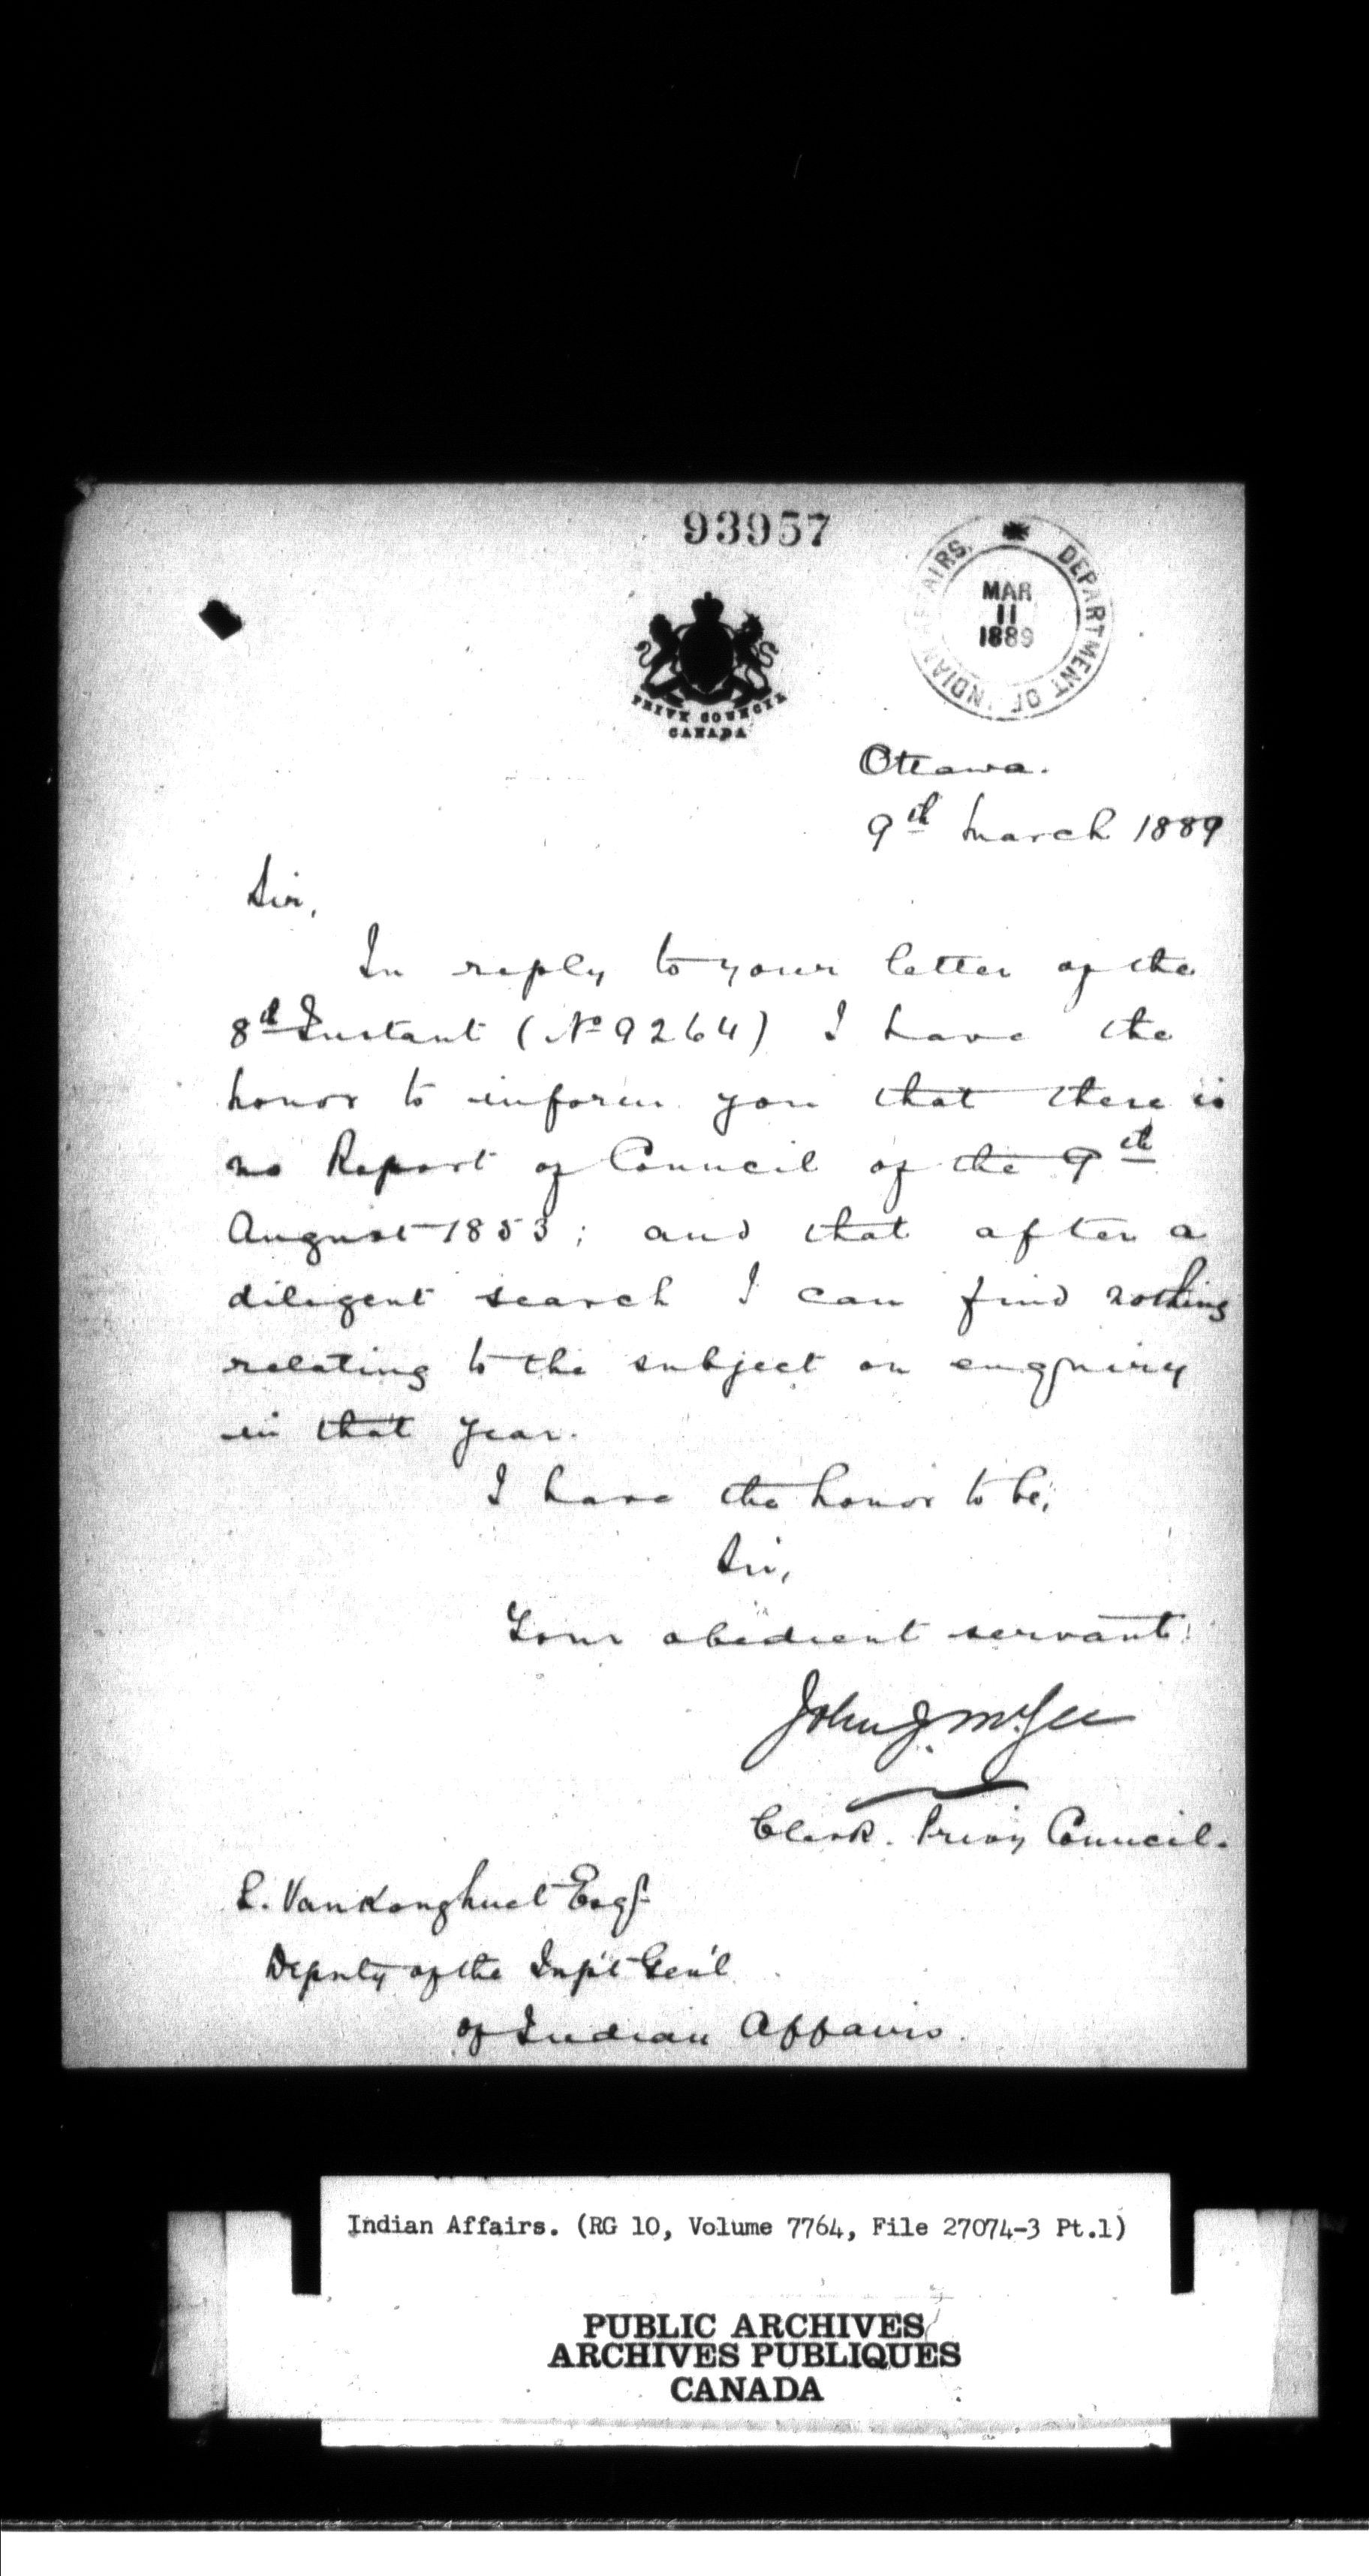 93957
DEPARTMENT OF INDIAN AFFAIRS.
MAR
11
1889
PRIVY COUNCIL
CANADA
Ottawa.
9th March 1889
Sir,
In reply to your letter of the
8th Instant (No 9264) I have the
honor to inform you that there is
no Report of Council of the 9th
August 1853; and that after a
diligent search I can find nothing
relating to the subject on enquiry
in that year.
I have the honor to be,
Sir,
Your obedient servant.
John J. McGee
Clerk. Privy Council.
L. Vankoughnet Esqr
Deputy of the Supt Gen'l
of Indian Affairs.
Indian Affairs. (RG 10, Volume 7764, File 27074-3 Pt.1)
PUBLIC ARCHIVES
ARCHIVES PUBLIQUES
CANADA